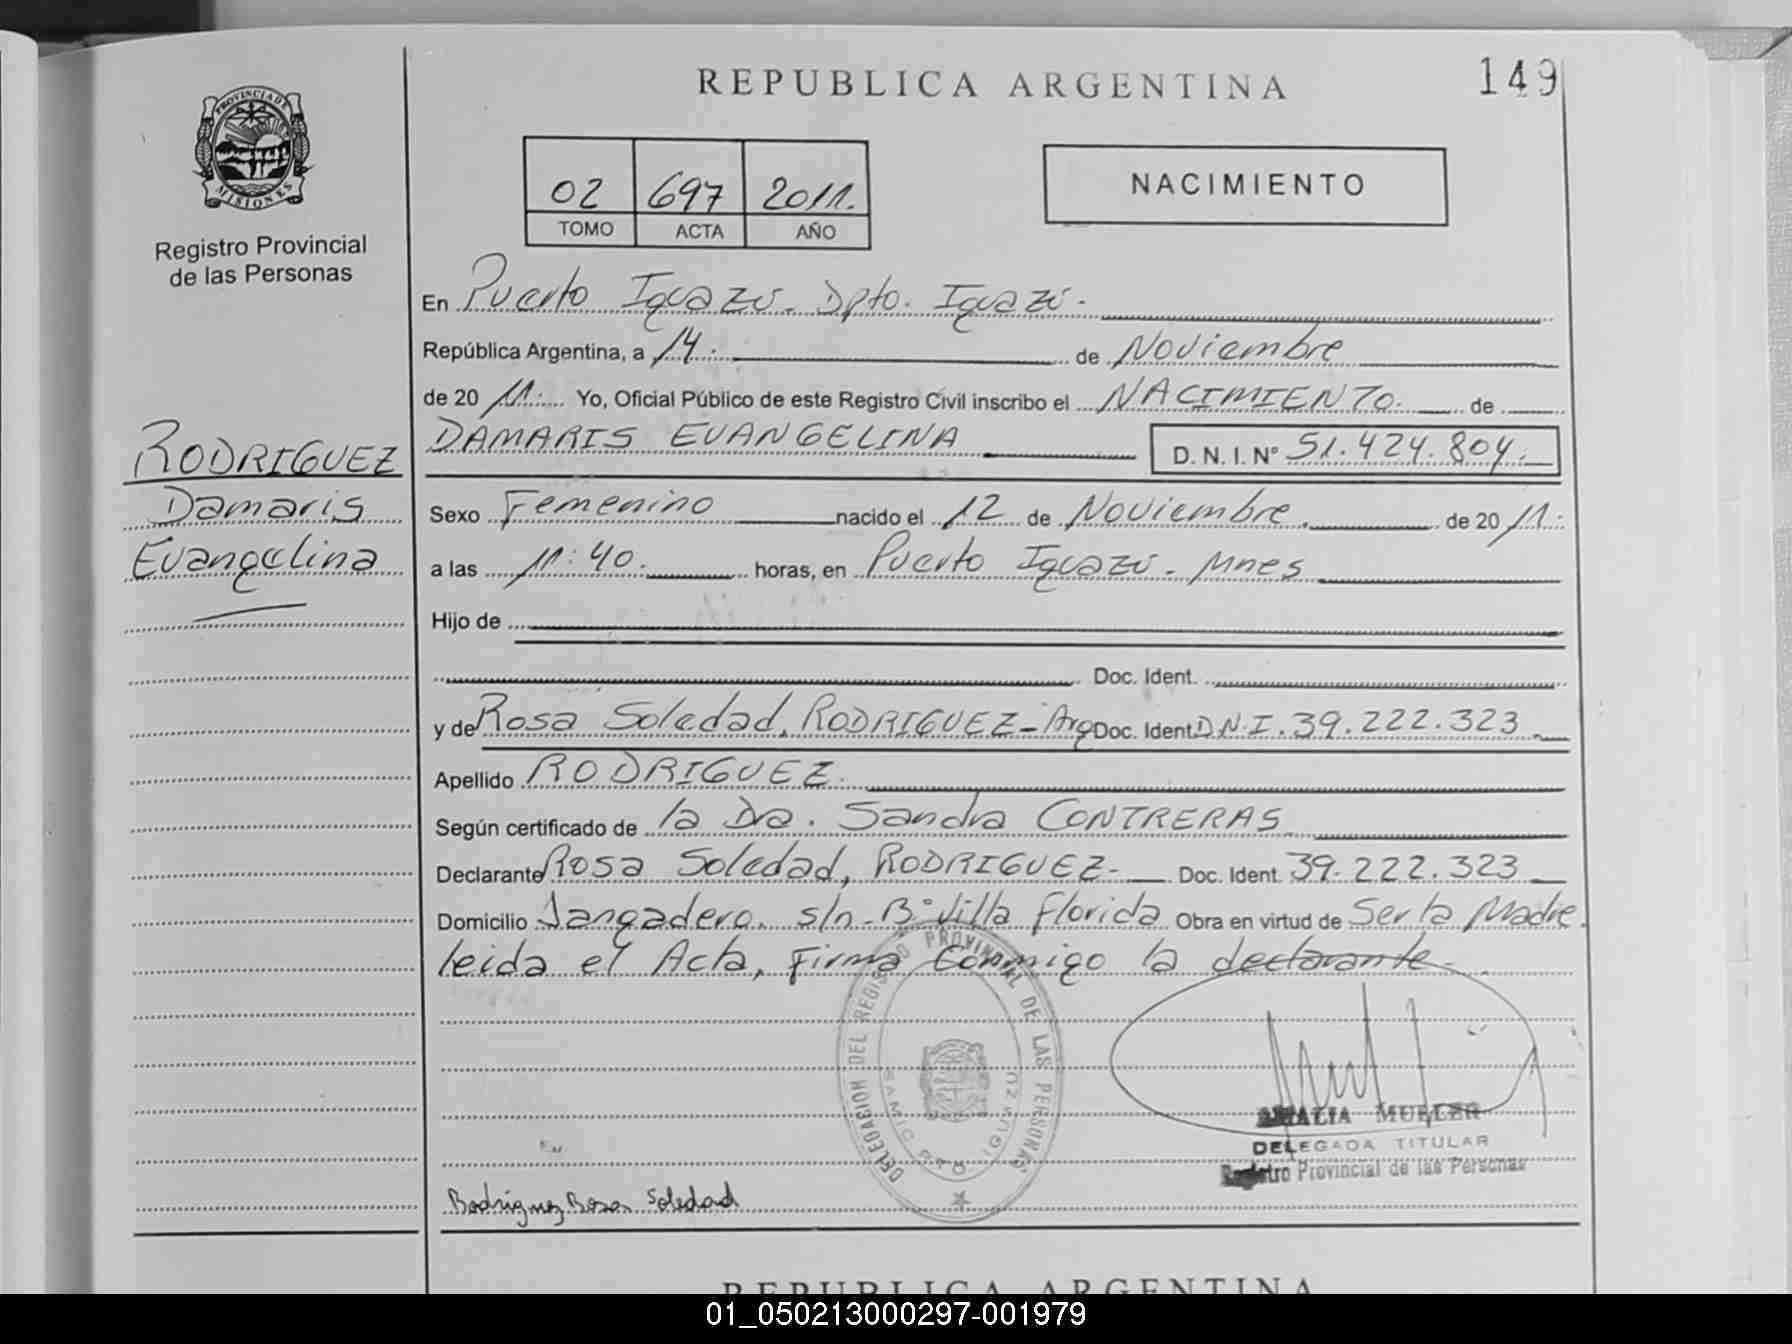 REPUBLICA ARGENTINA
149
PROVINCIA DE
MISIONES
Registro Provincial
de las Personas
RODRIGUEZ
Damaris
Evangelina
02 697 2011.
TOMO ACTA AÑO
NACIMIENTO
En Puerto Iguazú - Dpto. Iguazú -
República Argentina, a 14. de Noviembre
de 20 11. Yo, Oficial Público de este Registro Civil inscribo el NACIMIENTO. de
DAMARIS EVANGELINA D. N. I. Nº 51.424.804.
Sexo Femenino nacido el 12 de Noviembre de 20 11.
a las 11:40. horas, en Puerto Iguazú - Mnes
Hijo de
Doc. Ident.
y de Rosa Soledad, RODRIGUEZ - Arg Doc. Ident. D.N.I. 39.222.323
Apellido RODRIGUEZ.
Según certificado de la Dra. Sandra CONTRERAS
Declarante Rosa Soledad, RODRIGUEZ - Doc. Ident. 39.222.323
Domicilio Jangadero. s/n - Bº Villa Florida Obra en virtud de Ser la Madre.
leida el Acta, Firma Conmigo la declarante -
DELEGACION DEL REGISTRO PROVINCIAL DE LAS PERSONAS
SAMIC PTO IGUAZU
AMALIA MUELER
DELEGADA TITULAR
Registro Provincial de las Personas
Rodriguez Rosa Soledad
REPUBLICA ARGENTINA
01_050213000297-001979